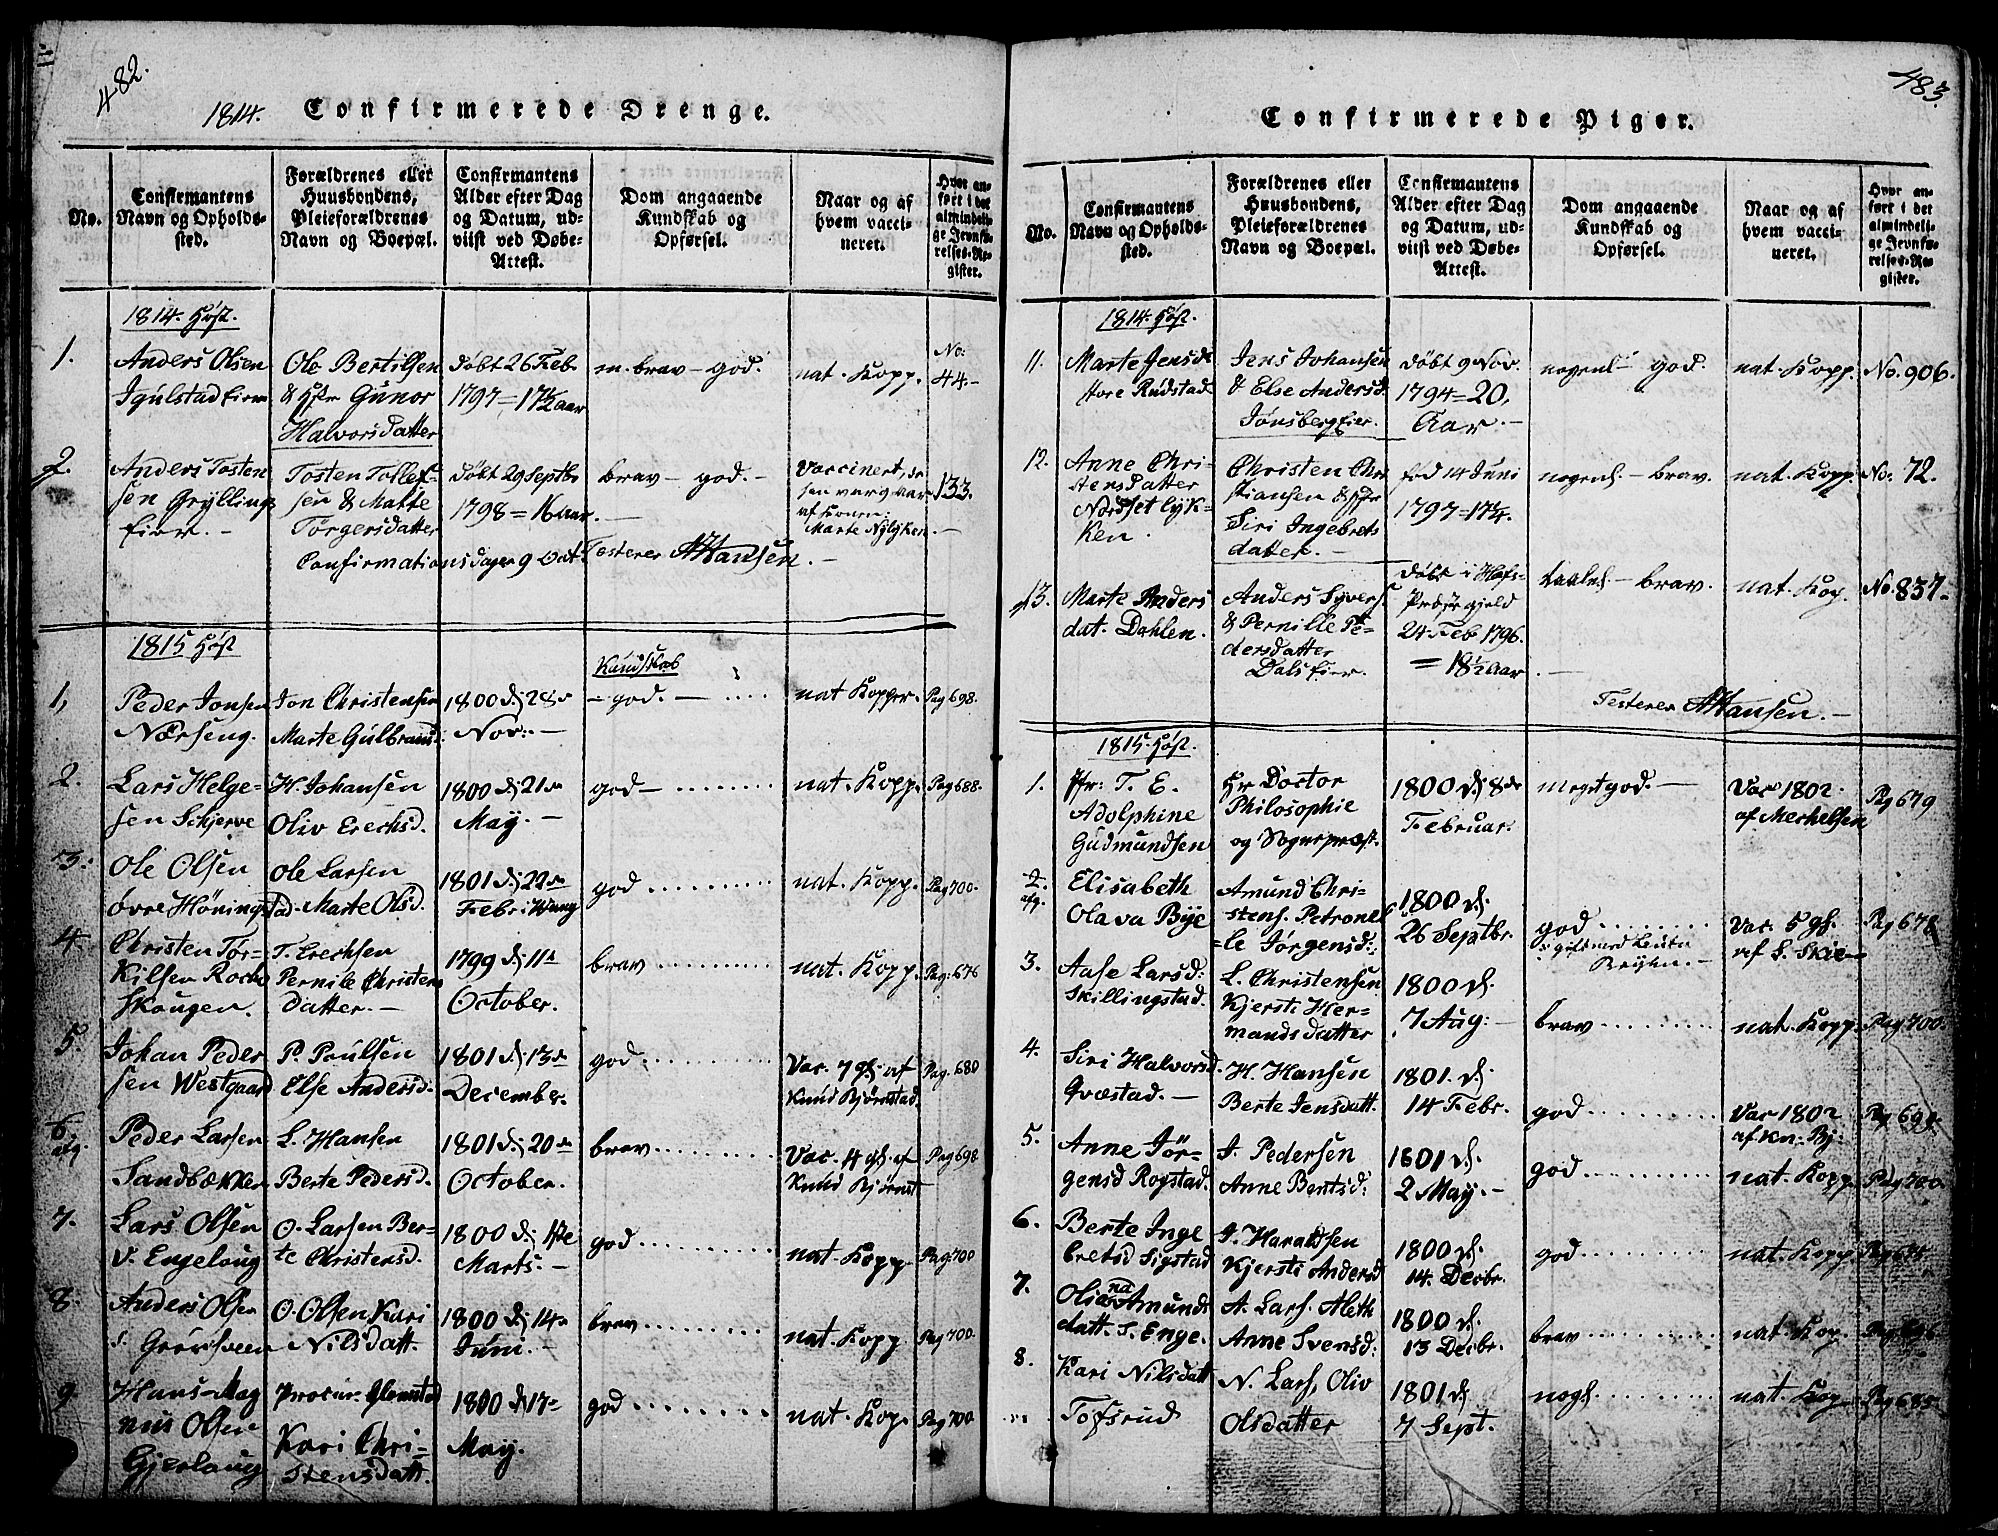 482.
1814. Confirmerede Drenge.
No.
Confirmantens
Navn og Opholds-
sted.
Forældrenes eller
Huusbondens,
Pleieforældrenes
Navn og Boepæl.
Confirmantens
Alder efter Dag
og Datum, ud-
viist ved Døbe-
Attest.
Dom angaaende
Kundskab og
Opførsel.
Naar og af
hvem vacci-
neret.
Hvor an-
ført i det
almindeli-
ge Jevnfø-
relses-Re-
gister.
1814. Høst.
1.
Anders Olsen
Ole Bertilsen
& Gunor
Halvorsdatter
døbt 26 Feb.
1797 = 17½ aar
m. brav - god.
nat. Kopp.
No:
44 -
2.
Anders Tosten
sen Grylling
eier. -
Tosten Tollef-
sen & Matte
Torgersdatter
døbt 29 Septb
1798 = 16 aar. -
brav - god. -
Vaccinert,
Marte
133.
Confirmationsdagen 9 Oct. Testerer AHansen. -
1815 Høst
Kundskab
1,
Peder Jonsen
Nærseng.
Jon Christensen
Marte Gulbrand:
1800 d; 28de
Nov: -
- god. - ....
nat Kopper.
Pag 698.
2.
Lars Helge-
sen Schjerve
H. Johansen
Oliv Erechsd.
1800 d; 21de
May. -
god - ........
nat. Kopp.
Pag 688.
3.
Ole Olsen
øvre Hønings
Ole Larsen
Marte Olsd.
1801 d; 22de
Febr i Wang
god ..........
nat. Kopp.
Pag 700.
4.
Christen Tør-
kilsen Roche
Skougen.
T. Erechsen
Pernile Christens
datter. -
1799 d; 11te
October.
brav ..........
nat. Kopp.
Pag. 676
5.
Johan Peder
sen Westgaard
P. Poulsen
Else Andersd:
1801 d; 13de
December.
god ..........
Vac. 7 af
Knud Bjørnstad.
Pag. 680
6.
afg.
Peder Larsen
Sandbækker
L. Hansen
Berte Pedersd.
1801 d; 20de
October.
brav ..........
Vac. 4 af
Knud Bjørnst
Pag 698
7.
Lars Olsen
v. Engelaug
O. Larsen Ber-
te Christensd.
1800 d; 1ste
Marts. -
god ..........
nat. Kopp.
Pag. 700
8.
Anders Olsen
O. Olsen Kari
Nilsdatt.
1800 d; 14de
Juni. -
brav ..........
nat. Kopp
Pag 700.
9
Hans Mag
nus Olsen
Gjerlaug
Kari Chri-
stensdatt.
1800 d; 17de
May.
god ..........
nat. Kop.
Pag 700
483.
Confirmerede Piger.
No.
Confirmantens
Navn og Opholds-
sted.
Forældrenes eller
Huusbondens,
Pleieforældrenes
Navn og Boepæl.
Confirmantens
Alder efter Dag
og Datum, ud-
viist ved Døbe-
Attest.
Dom angaaende
Kundskab og
Opførsel.
Naar og af
hvem vacci-
neret.
Hvor an-
ført i det
almindeli-
ge Jevnfø-
relses-Re-
gister.
1814. Høst.
11.
Marte Jensd
store Rudstad
Jens Johansen
& Else Andersd.
Jønsberg Eier.
døbt 9 Nov.
1794 = 20,
Aar. -
nogenl - god.
nat. Kopp.
No. 906.
12.
Anne Chri-
stensdatter
Nordset lyk-
ken.
Christen Chri
stiansen &
Siri Ingebrets
datter. -
fød 14 Juni
1797 = 17¼.
nogenl. - brav.
nat. Kopp.
No: 72.
13.
Marte Anders
dat. Dahlen.
Anders Syvers.
& Pernille Pe-
dersdatter
Dals Eier.
døbt i Hofs-
Præstegjeld
24 Feb 1796.
= 18½ aar. -
taalel. - brav.
nat. Kop.
No. 837 -
Testerer AHansen. -
1815 Høst.
1.
Jfr: T. E.
Adolphine
Gudmundsen
Hr Doctor
Philosophie
og Sognepræst.
1800 d; 8de
Februar.
meget god. -
Vac 1802.
af Merhelsen
Pag 679
2.
afg.
Elisabeth
Olava Bye
Amund Chri-
stens. Petronel
le Jørgensd:
1800 d.
26 Septbr.
god .........
Vac. 5
af S. Skie
Pag 678
3.
Aase Larsd:
Skillingstad.
L. Christensen
Kjersti Her-
mandsdatter
1800 d.
7 Aug: -
brav .........
nat. Kopp.
Pag 700.
4.
Siri Halvorsd
Qvæstad. -
H. Hansen
Berte Jensdatt.
1801. d;
14 Febr.
god .........
Vac 1802
af Kn. Bj:
5.
Anne Jør-
gensd Rogstad.
J. Pedersen
Anne Bentsd:
1801 d.
2 May. -
god ........
nat. Kopp.
Pag 700.
6.
Berte Inge
bretsd Sigstad
J. Haraldsen
Kjersti Andersd
1800 d.
14. Decbr.
god ........
nat. Kopp.
7.
Amunds
datt. S. Enge.
A. Lars. Aleth
Anne Svensd:
1800 d.
13 Decbr.
brav ........
nat. Kop.
8.
Kari Nilsdatt
Tofsrud
N. Lars, Oliv
Olsdatter
1801 d
7 Sept.
nogl. .......
nat Kop.
Pag 685.